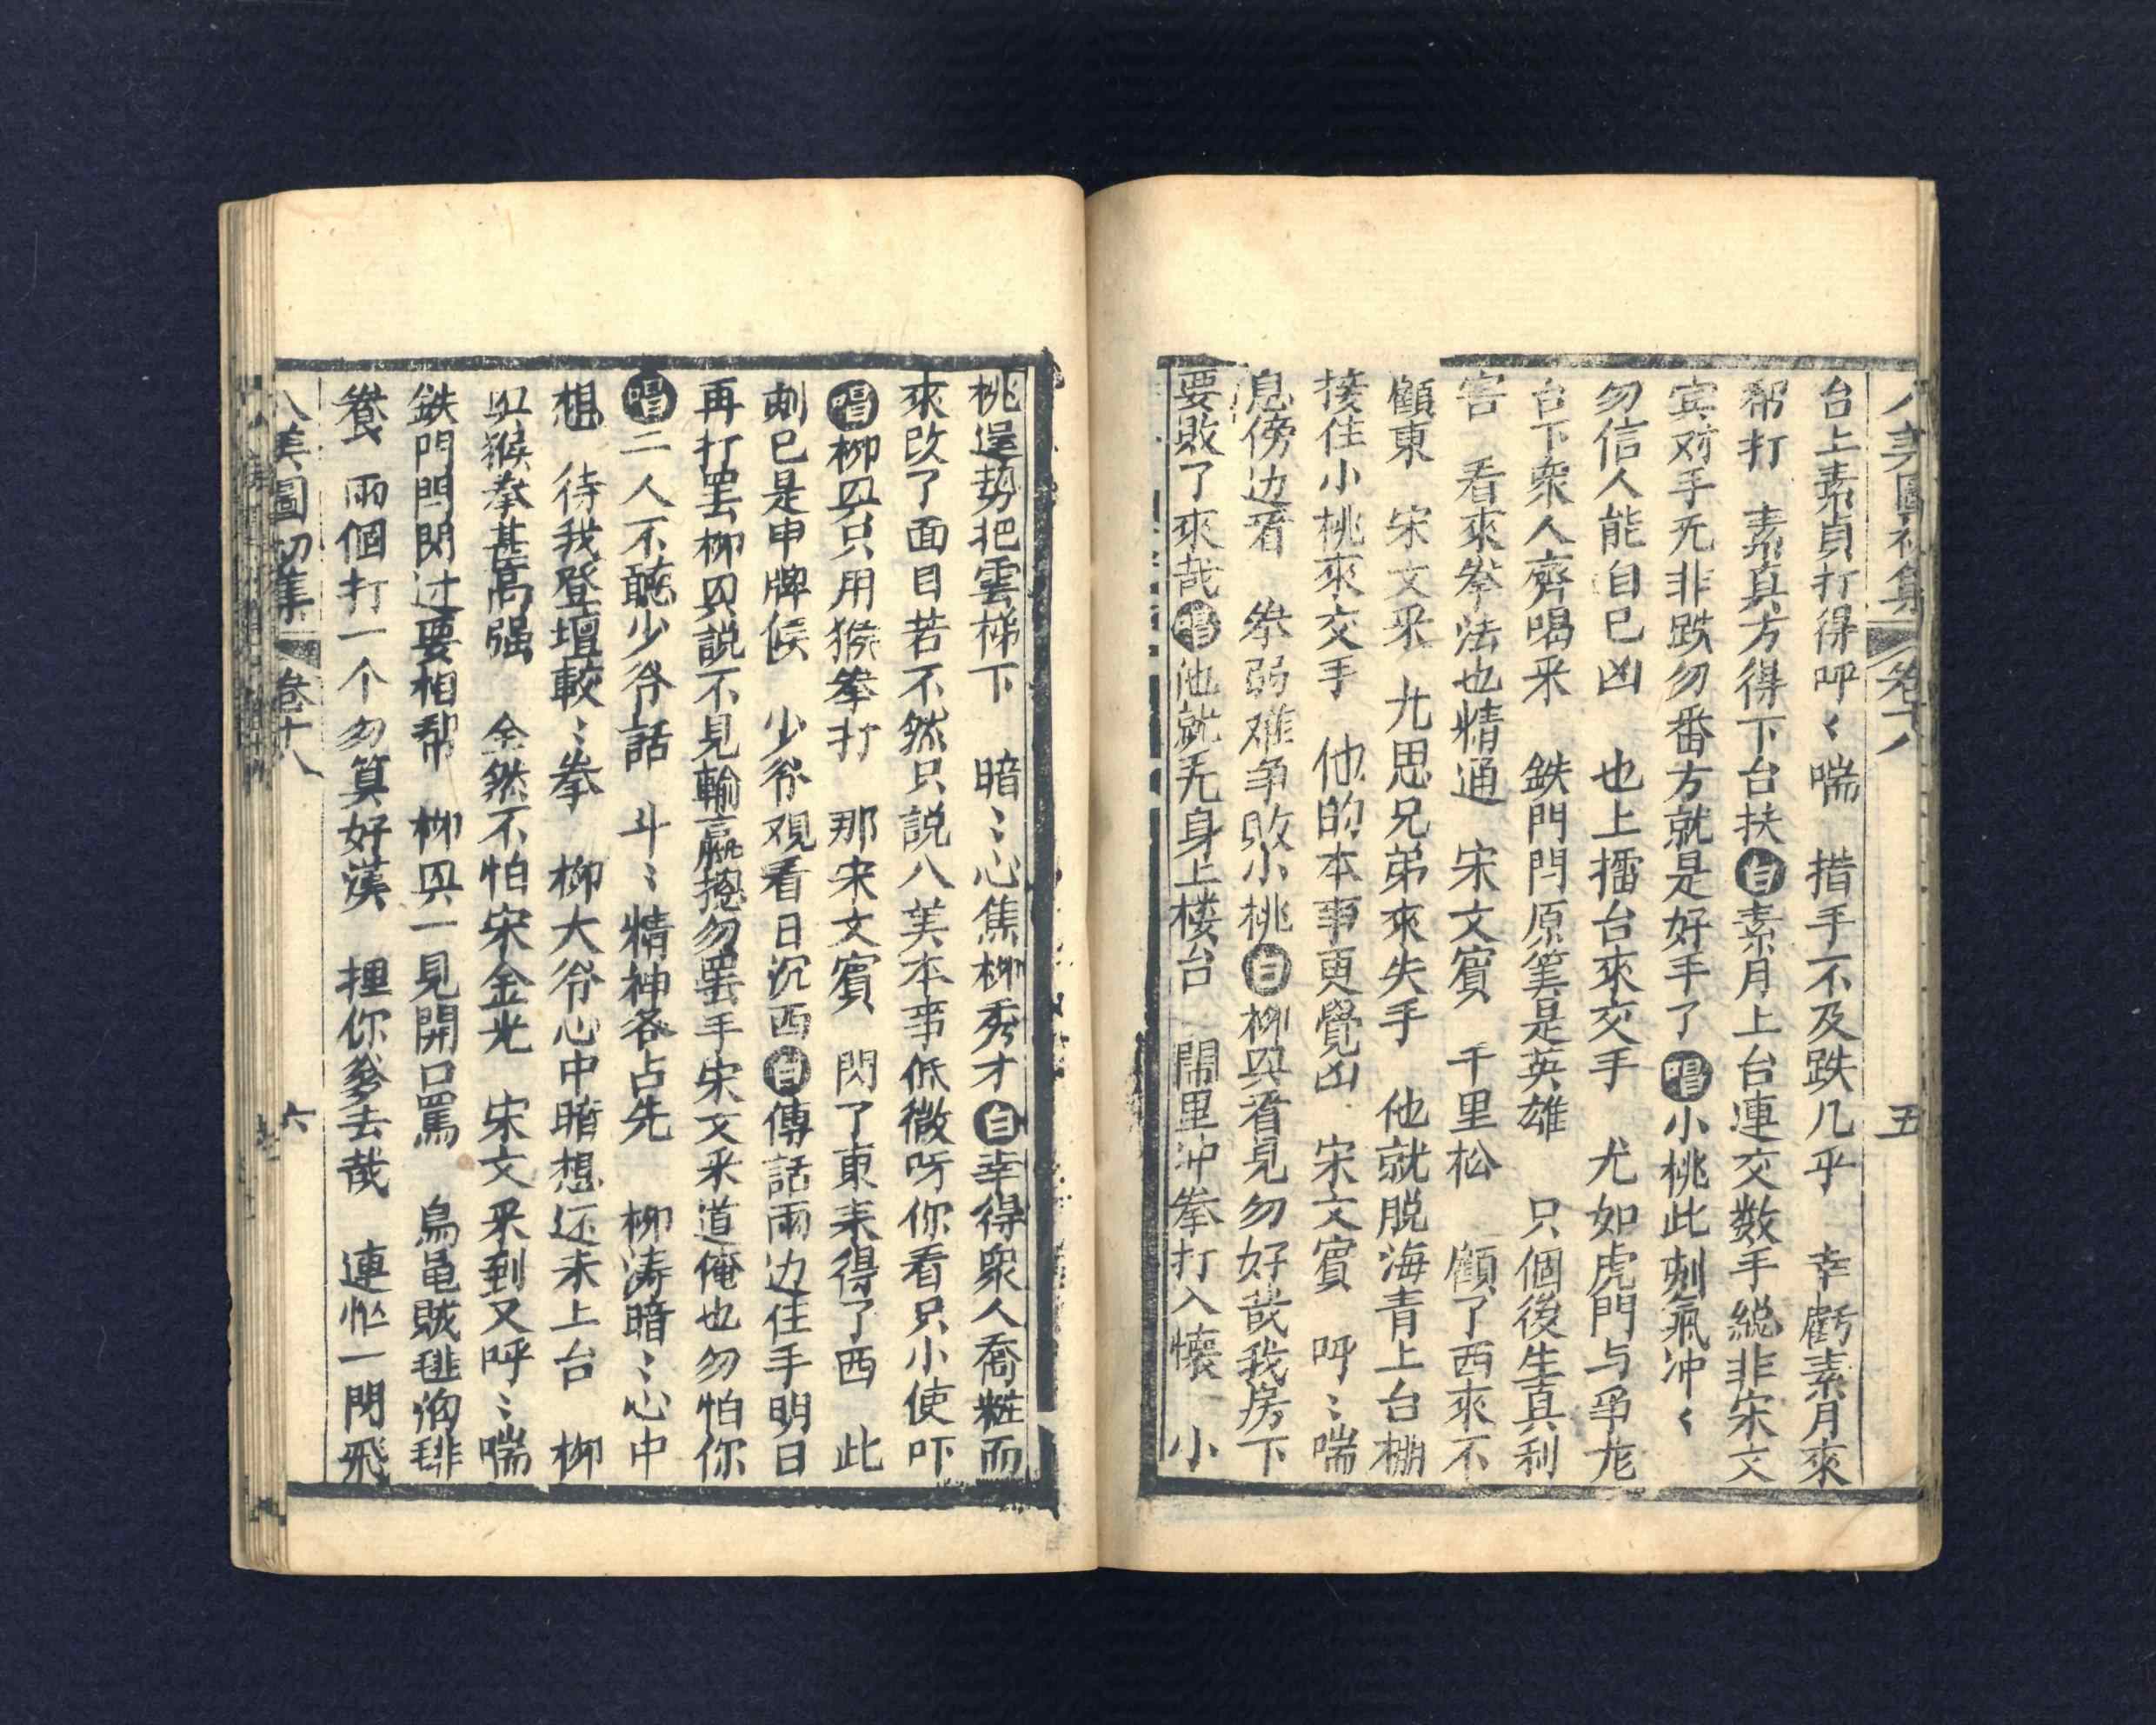 八美圖初集 卷十八 五
台上素貞打得呼〻喘 措手不及跌几乎 幸虧素月來
帮打 素真方得下台扶 白 素月上台連交数手総非宋文
宾对手无非跌勿番方就是好手了 唱 小桃此刻氣冲〻
勿信人能自已凶 也上擂台來交手 尤如虎鬥与爭尨
台下衆人齊喝采 鉄門閂原筭是英雄 只個後生真利
害 看來拳法也精通 宋文賓 千里松 顧了西來不
顧東 宋文采 尤思兄弟來失手 他就脱海青上台棚
接住小桃來交手 他的本事更覺凶 宋文賓 呼〻喘
息傍边看 拳弱难争敗小桃 白 柳㓁看見勿好哉我房下
要敗了來哉 唱 他就无身上楼台 鬧里冲拳打入懷 小
桃逞勢把雲梯下 暗〻心焦柳秀才 白 幸得衆人喬粧而
來改了面目若不然只説八美本事低微呀你看只小使吓
唱 柳㓁只用猴拳打 那宋文賓 閃了東來得了西 此
刻已是申牌候 少爷观看日沉西 白 傳話兩边住手明日
再打罢柳㓁説不見輸贏摠勿罢手宋文采道俺也勿怕你
唱 二人不聽少爷話 斗〻精神各占先 柳涛暗〻心中
想 待我登壇較〻拳 柳大爷心中暗想还未上台 柳
㓁猴拳甚高强 全然不怕宋金光 宋文采到又呼〻喘
鉄門閂閃过要相帮 柳㓁一見開口駡 烏龟賊㹃狥㹃
養 兩個打一个勿算好漢 捶你爹去哉 連忙一閃飛
八美圖初集 卷十八 六